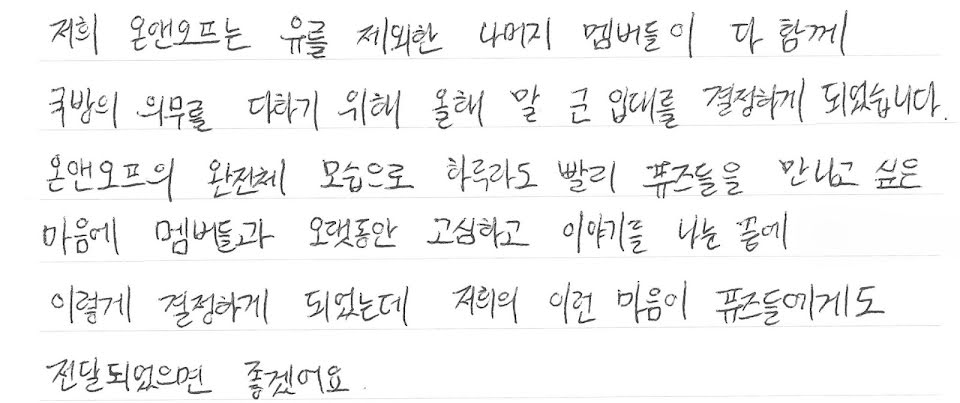 저희 온앤오프는 유를 제외한 나머지 멤버들이 다 함께
국방의 의무를 다하기 위해 올해 말 군 입대를 결정하게 되었습니다.
온앤오프의 완전체 모습으로 하루라도 빨리 퓨즈들을 만나고 싶은
마음에 멤버들과 오랫동안 고심하고 이야기를 나눈 끝에
이렇게 결정하게 되었는데 저희의 이런 마음이 퓨즈들에게도
전달되었으면 좋겠어요.